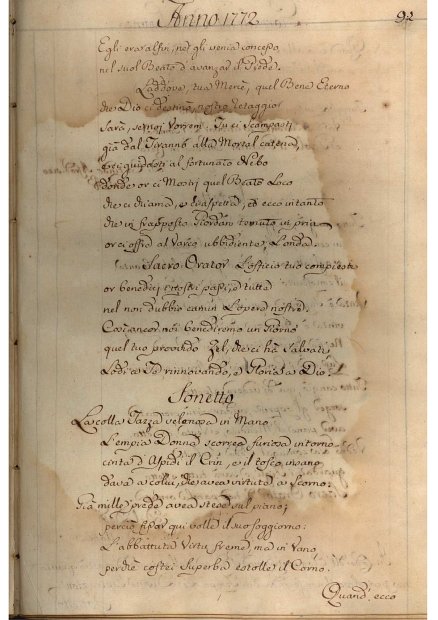 Anno 1772
92
Egli era alfin, nè gli venia concesso
nel suol Beato d'avanzar il Piede.
Laddove, tua Mercè, quel Bene Eterno
che Dio ci destinò, nostro retaggio
Sarà, se noi Vorrem. Tu ci Scampasti
già dal Tiranno alla Mortal catena,
al fortunato Nebo
donde or ci Mostri quel Beato Loco
che ci chiama, e ci aspetta, ed ecco intanto
che in frapposto Giordan temuto in pria
or ci offre al Varco ubbidiente, L'onda.
Sacro Orator L'officio tuo compiesti
or benedici i nostri passi, e tutta
nel non dubbio camin L'opera nostra.
Così ancor noi benediremo un Giorno
quel tuo provvido Zel, che ci ha Salvati
Lodi a Te rinnovando, e Gloria a Dio.
Sonetto
La colla Tazza velenosa in Mano
L'empia Donna scorrea furiosa intorno
cinta d'Aspidi il Crin, e il tosco insano
dava a colui, che avea virtute a Scorno.
Già mille prede avea stese sul piano,
perciò fissar qui volle il suo soggiorno:
L'abbattuta Virtù freme, ma in Vano,
perchè costei Superba estolle il Corno.
Quand' ecco